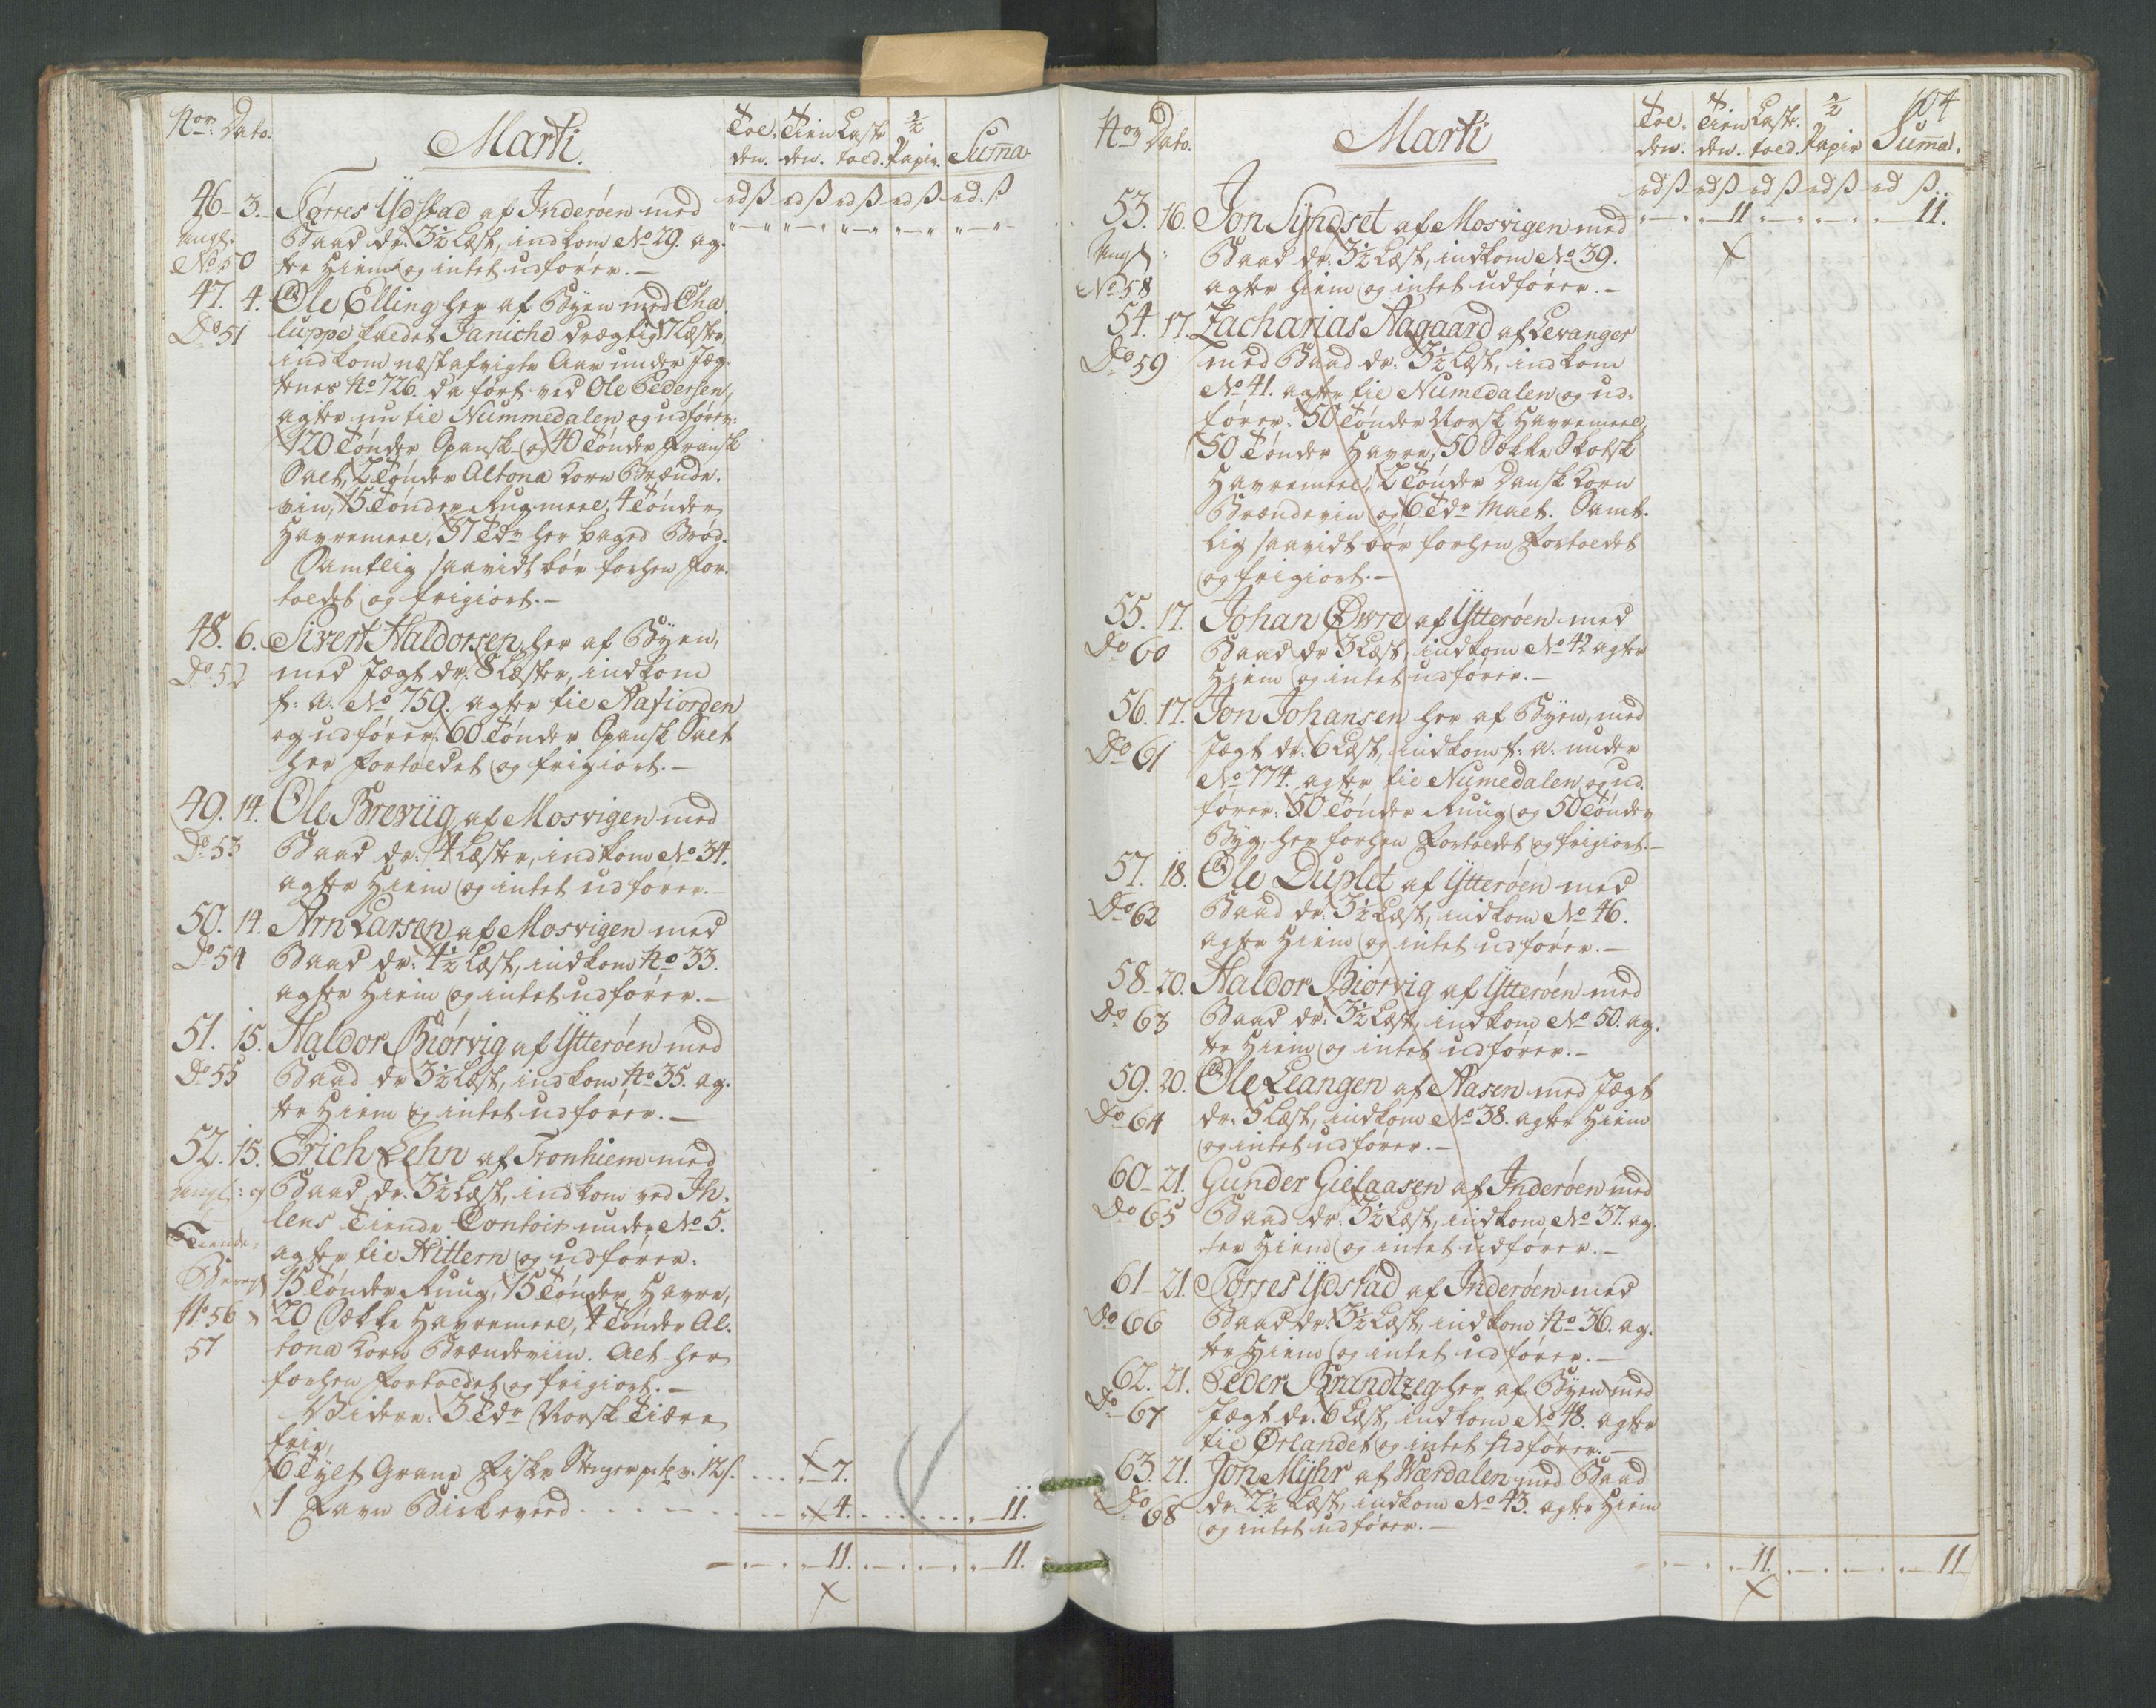 Nor. Dato.
Marti.
Tol- Tien Laste ½
den. den. told. Papir. Summa.
rd ß rd ß rd ß rd ß rd. ß
46. 3. Tørres Ydstad af Inderøen med
Angl. Baad dr. 3½ Læst, indkom No 29. ag-
No 50 ter Hiem og intet udfører.-
47. 4. Ole Elling her af Byen med Cha-
Do 51 luppe kaldet Janiche drægtig 7 Læster,
indkom næstafvigte Aar under Jæg-
ternes No 726. da ført ved Ole Pedersen,
agter nu til Nummedalen og udfører:
120 Tønder Spansk og 40 Tønder Fransk
Salt, 2 Tønder Altona Korn Brænde-
vin, 15 Tønder Rugmeel, 4 Tønder
Havremeel, 37 Tdr her baged Brød.
Samtlig saavidt bør forhen For-
toldet og frigiort.-
48. 6. Sivert Haldorsen her af Byen,
Do 52 med Jægt dr. 8 Læster, indkom
f: a: No 759. agter til Aafiorden
og udfører: 60 Tønder Spansk Salt
her fortoldet og frigiort.-
49. 14. Ole Breviig af Mosvigen med
Do 53 Baad dr: 4 Læster, indkom No 34.
agter Hiem og intet udfører.-
50. 14. Arn Larsen af Mosvigen med
Do 54 Baad dr: 4½ Læst, indkom No 33.
agter Hiem og intet udfører.-
51. 15. Haldor Biørvig af Ytterøen med
Do 55 Baad dr 3½ Læst, indkom No 35. ag-
ter Hiem og intet udfører.-
52. 15. Erich Lehn af Tronhiem med
Angl: og Baad dr. 3½ Læst, indkom ved Ih-
lens Tiende Contoir under No 5.
Tiende- agter til Hittern og udfører:
15 Tønder Ruug, 15 Tønder Havre,
No 56 20 Sække Havremeel, 4 Tønder Al-
57 tona Korn Brændeviin. Alt her
forhen fortoldet og frigiort.-
Videre: 3 Tdr Norsk Tiære
frie,
6 Tylt Grane Fiske Stenger pr. tr. 12 ß. . . . 7.
1 Favn Birkeveed . . . 4. . . . 11.
11. . . . 11.
104
Nor Dato.
Marti
Tol- Tien Laste- ½
den. den. told. Papir Summa.
rd ß rd ß rd ß rd ß rd ß
53. 16. Jon Syndset af Mosvigen med . . 11 . . . 11.
Angl: Baad dr: 3½ Læst, indkom No 39.
No 58 agter Hiem og intet udfører.-
54. 17. Zacharias Aagaard af Levanger
Do 59 med Baad dr. 3½ Læst, indkom
No 41. agter til Numedalen og ud-
fører: 50 Tønder Norsk Havremeel,
50 Tønder Havre, 50 Sække Skotsk
Havremeel, 2 Tønder Dansk Korn
Brændeviin og 6 Tdr Malt. Samt-
lig saavidt bør forhen Fortoldet
og frigiort.-
55. 17. Johan Øvre af Ytterøen med
Do 60 Baad dr 3 Læst, indkom No 42 agter
Hiem og intet udfører.-
56. 17. Jon Johansen her af Byen, med
Do 61 Jægt dr. 6 Læst, indkom f: a. under
No 774. agter til Numedalen og ud-
fører: 50 Tønder Ruug og 50 Tønder
Byg, her forhen Fortoldet og frigiort.-
57. 18. Ole Duplet af Ytterøen med
Do 62 Baad dr: 3½ Læst, indkom No 46.
agter Hiem og intet udfører.-
58. 20. Haldor Biørvig af Ytterøen med
Do 63 Baad dr: 3½ Læst, indkom No 50. ag-
ter Hiem og intet udfører.-
59. 20. Ole Leangen af Aasen med Jægt
Do 64 dr: 5 Læst, indkom No 38. agter Hiem
og intet udfører.-
60. 21. Gunder Gielaasen af Inderøen med
Do 65 Baad dr: 3½ Læst, indkom No 37. ag-
ter Hiem og intet udfører.-
61. 21. Tørres Ydstad af Inderøen med
Do 66 Baad dr: 3½ Læst, indkom No 36. ag-
ter Hiem og intet udfører.-
62. 21. Peder Brandtzeg her af Byen med
Do 67 Jægt dr. 6 Læst, indkom No 48. agter
til Ørlandet og intet udfører.-
63. 21. Jon Myhr af Værdalen med Baad
Do 68 dr. 2½ Læst, indkom No 43. agter Hiem
og intet udfører.-
11. . . . 11